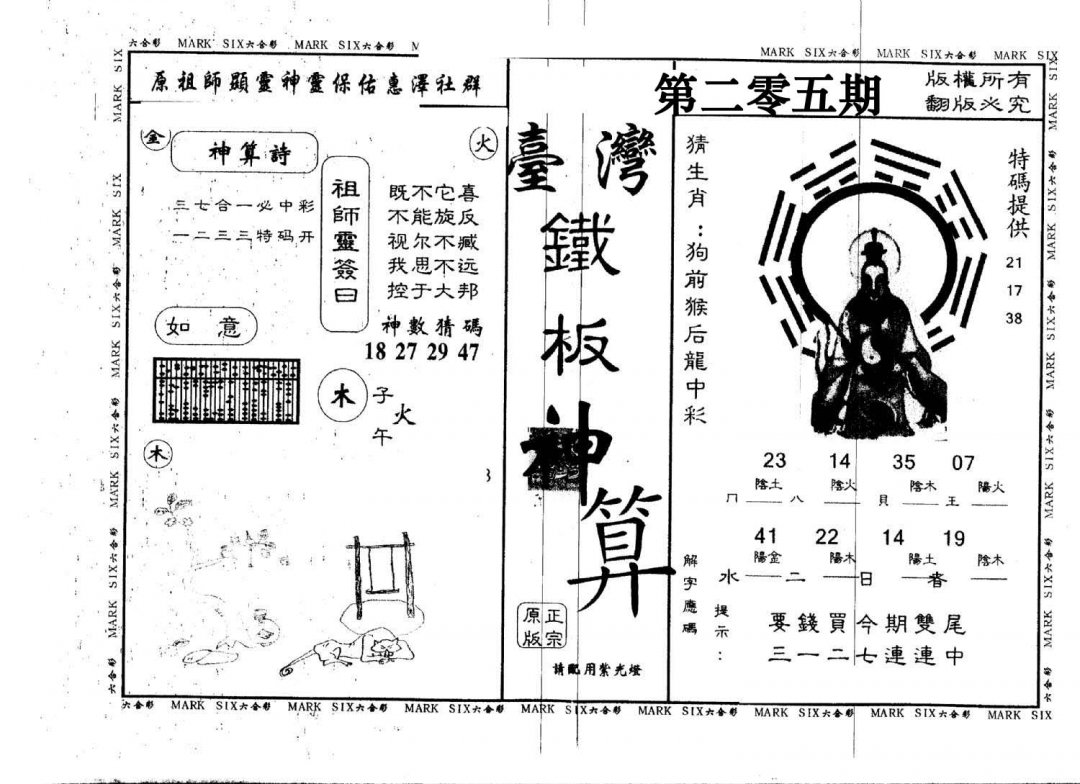 六合彩 MARK SIX六合彩 MARK SIX六合彩 M
MARK SIX六合彩 MARK SIX六合彩 MARK SIX
原祖師顯靈神靈保佑惠澤社群
第二零五期
版權所有
翻版必究
金
神算詩
三七合一必中彩
一二三三特码开
火
祖師靈簽曰
既不它喜
不能旋反
视尔不臧
我思不远
控于大邦
神數猜碼
18 27 29 47
如意
木
子
火
午
木
臺灣
鐵
板
神
算
正宗
原版
請配用紫光燈
猜生肖:狗前猴后龍中彩
特碼提供
21
17
38
23 14 35 07
陰土 陰火 陰木 陽火
冂 八 貝 王
41 22 14 19
陽金 陽木 陽土 陰木
水 二 日 春
解字應碼
提示:
要錢買今期雙尾
三一二七連連中
六合彩 MARK SIX六合彩 MARK SIX六合彩 MARK SIX六合彩 MARK SIX六合彩 MARK SIX六合彩 MARK SIX六合彩 MARK SIX六合彩 MARK SIX